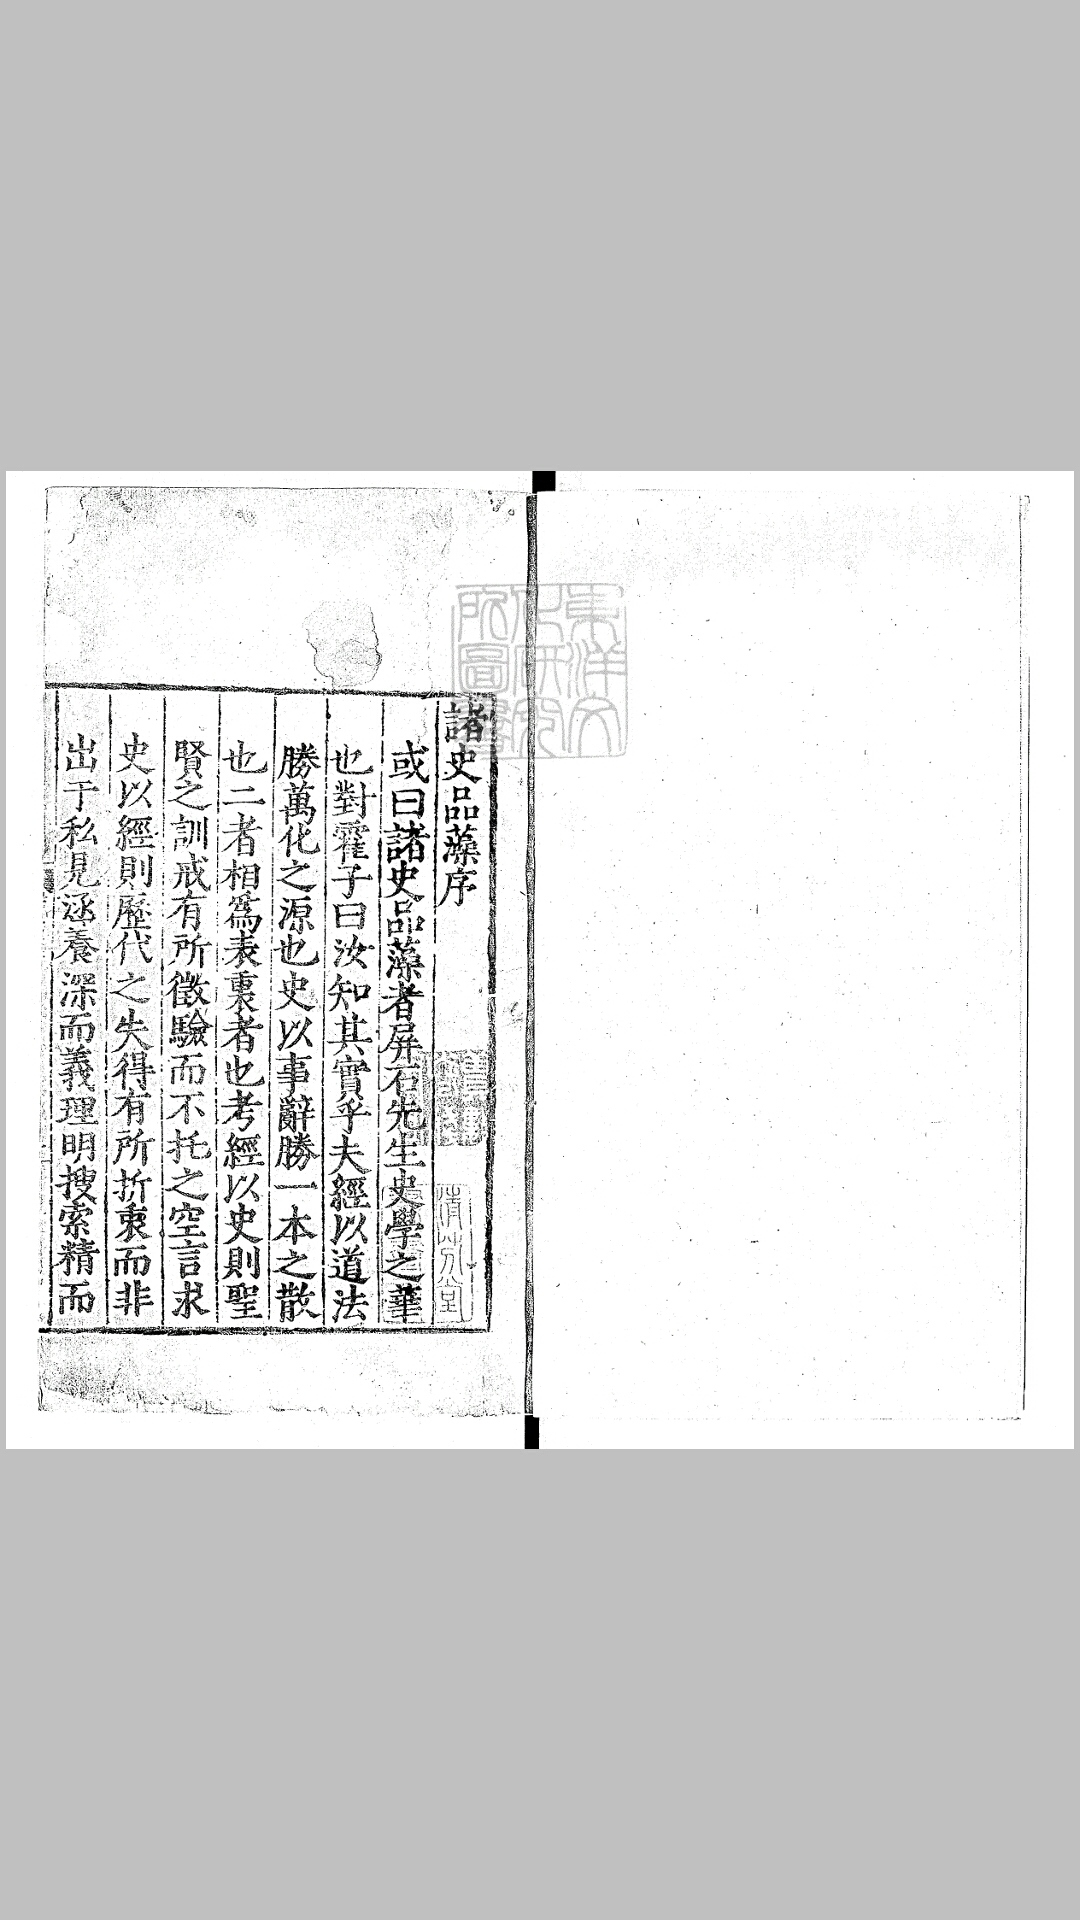 諸史品藻序
或曰諸史品藻者屏石先生史學之華
也對霍子曰汝知其實乎夫經以道法
勝萬化之源也史以事辭勝一本之散
也二者相為表裏者也考經以史則聖
賢之訓戒有所徵驗而不托之空言求
史以經則歷代之失得有所折衷而非
出于私見涵養深而義理明搜索精而
東洋文
化研究
所圖書
清芬堂